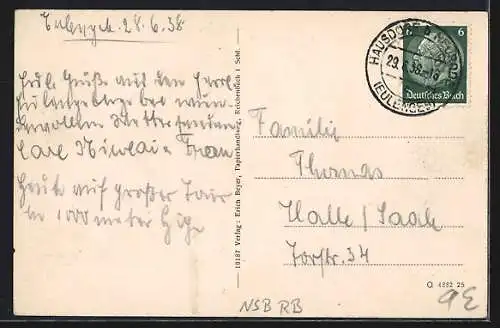 Eulengeb. 28.6.38
Herzl. Grüße aus dem herrl.
Eulengebirge bei wun-
dervollem Wetter senden
Carl Nicolai u. Frau
Heute auf großer Tour
in 1000 meter Höhe
10187 Verlag: Erich Beyer, Papierhandlung, Reichenbach i. Schl.
HAUSDORF b. NEUROD
29.6.38
(EULENGEB)
6 6
Deutsches Reich
Familie
Thomas
Halle/Saale
Torstr. 34
O 4882 25
NSB RB
9E